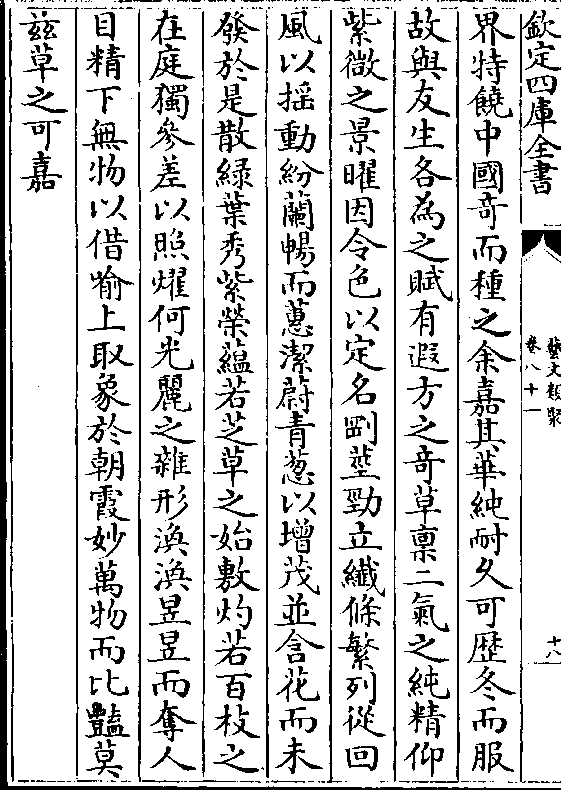 欽定四庫全書
藝文類聚
卷八十一
十八
界特饒中國竒而種之余嘉其華純耐久可歴冬而服
故與友生各為之賦有遐方之竒草禀二氣之純精仰
紫微之景曜因令色以定名剛莖勁立纎條繁列從回
風以揺動紛蘭暢而蕙潔蔚青葱以增茂並含花而未
發於是散緑葉秀紫榮藴若芝草之始敷灼若百枝之
在庭獨參差以照燿何光麗之雜形渙渙昱昱而奪人
目精下無物以借喻上取象於朝霞妙萬物而比豔莫
茲草之可嘉